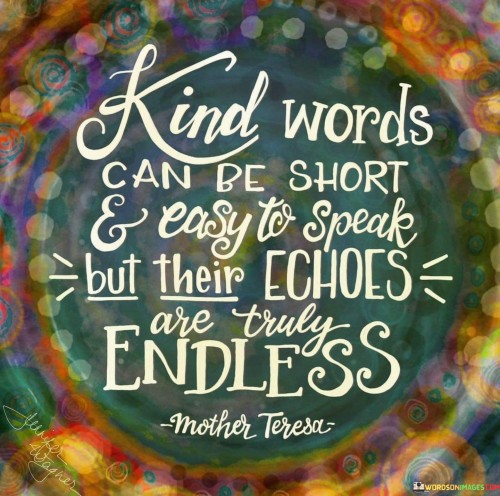 Kind words
CAN BE SHORT
& easy to speak
but their ECHOES
are truly
ENDLESS
-Mother Teresa-
Jennifer
Wagner
WORDSONIMAGES.COM